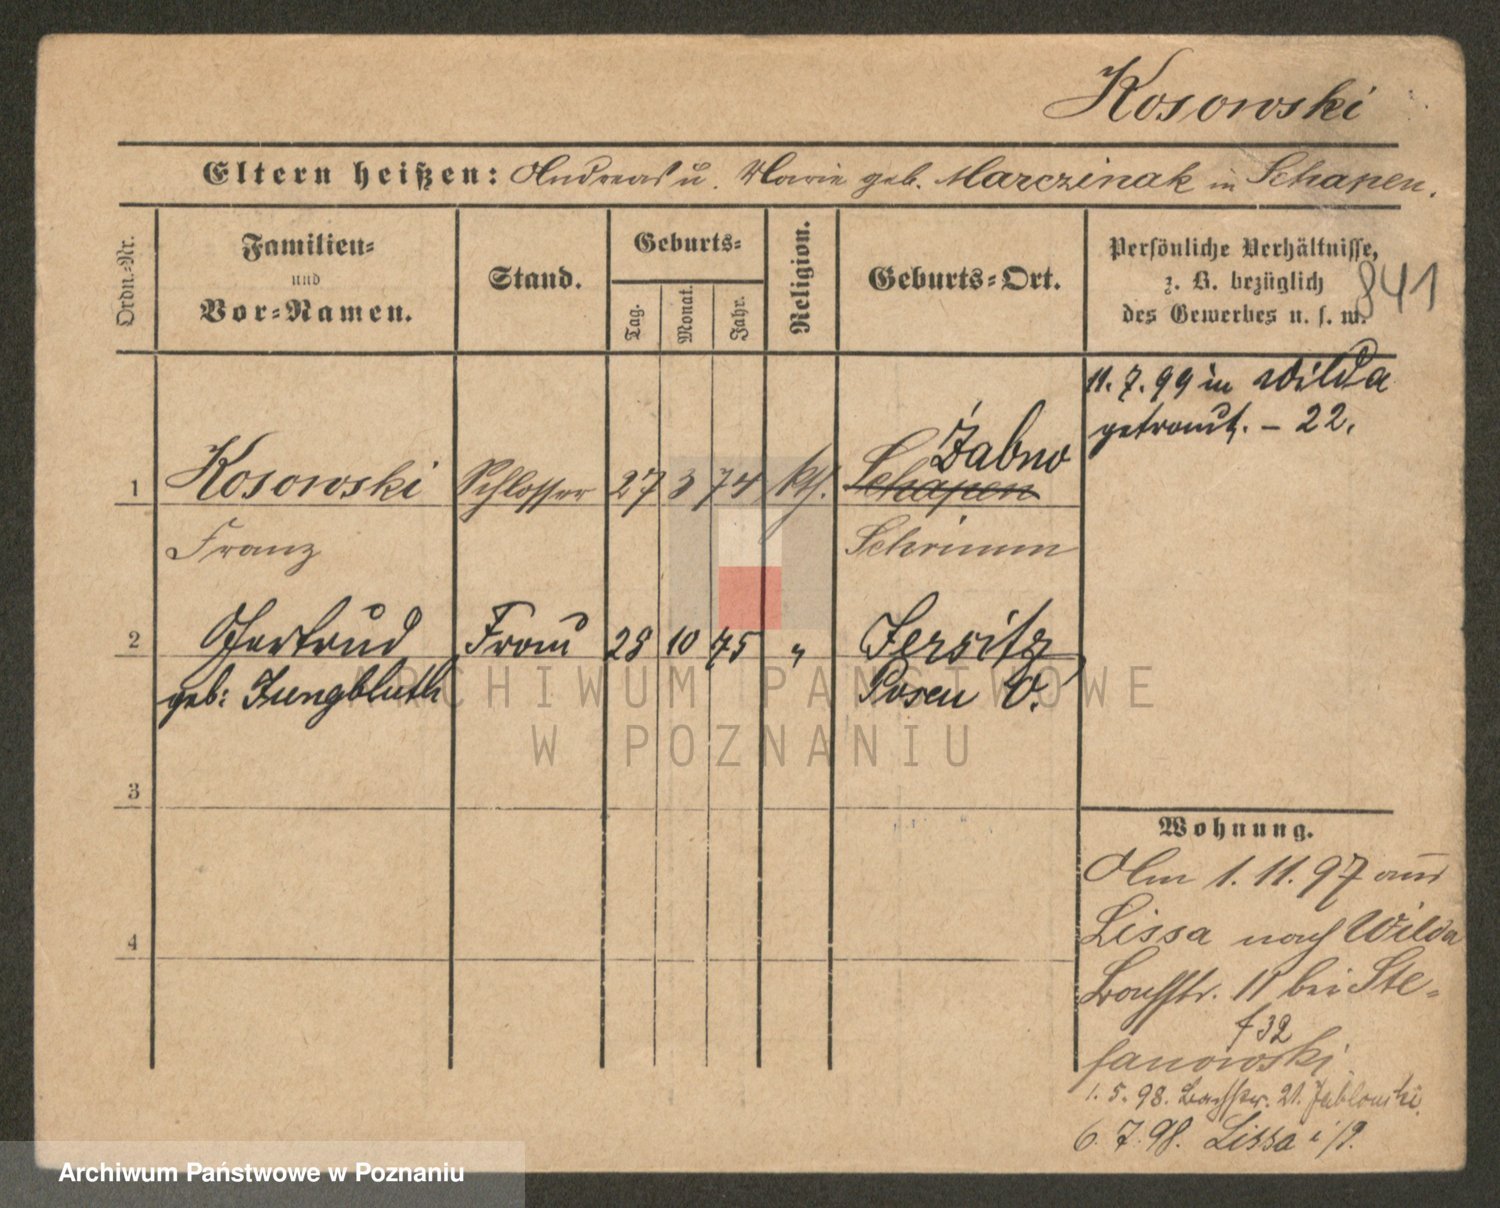 Kosowski
Eltern heißen: Andreas u. Marie geb. Marczinak in Schapen.
Ordn.-Nr.
Familien-
und
Vor-Namen.
Stand.
Geburts-
Tag.
Monat.
Jahr.
Religion.
Geburts-Ort.
Persönliche Verhältnisse,
z. B. bezüglich
des Gewerbes u. s. w.
841
11. 7. 99 in Wilda
getraut. - 22.
Żabno
1 Kosowski Schlosser 27 3 74 kth. Schapen
Franz Schrimm
2 Gertrud Frau 28 10 75 " Jersitz
geb: Jungbluth Posen O.
3
4
Wohnung.
Am 1. 11. 97 aus
Lissa nach Wilda
Bachstr. 11 bei Ste-
f 32
fanowski
1. 5. 98. Bachstr. 21. Jablonski.
6. 7. 98. Lissa i/P.
ARCHIWUM PAŃSTWOWE
W POZNANIU
Archiwum Państwowe w Poznaniu